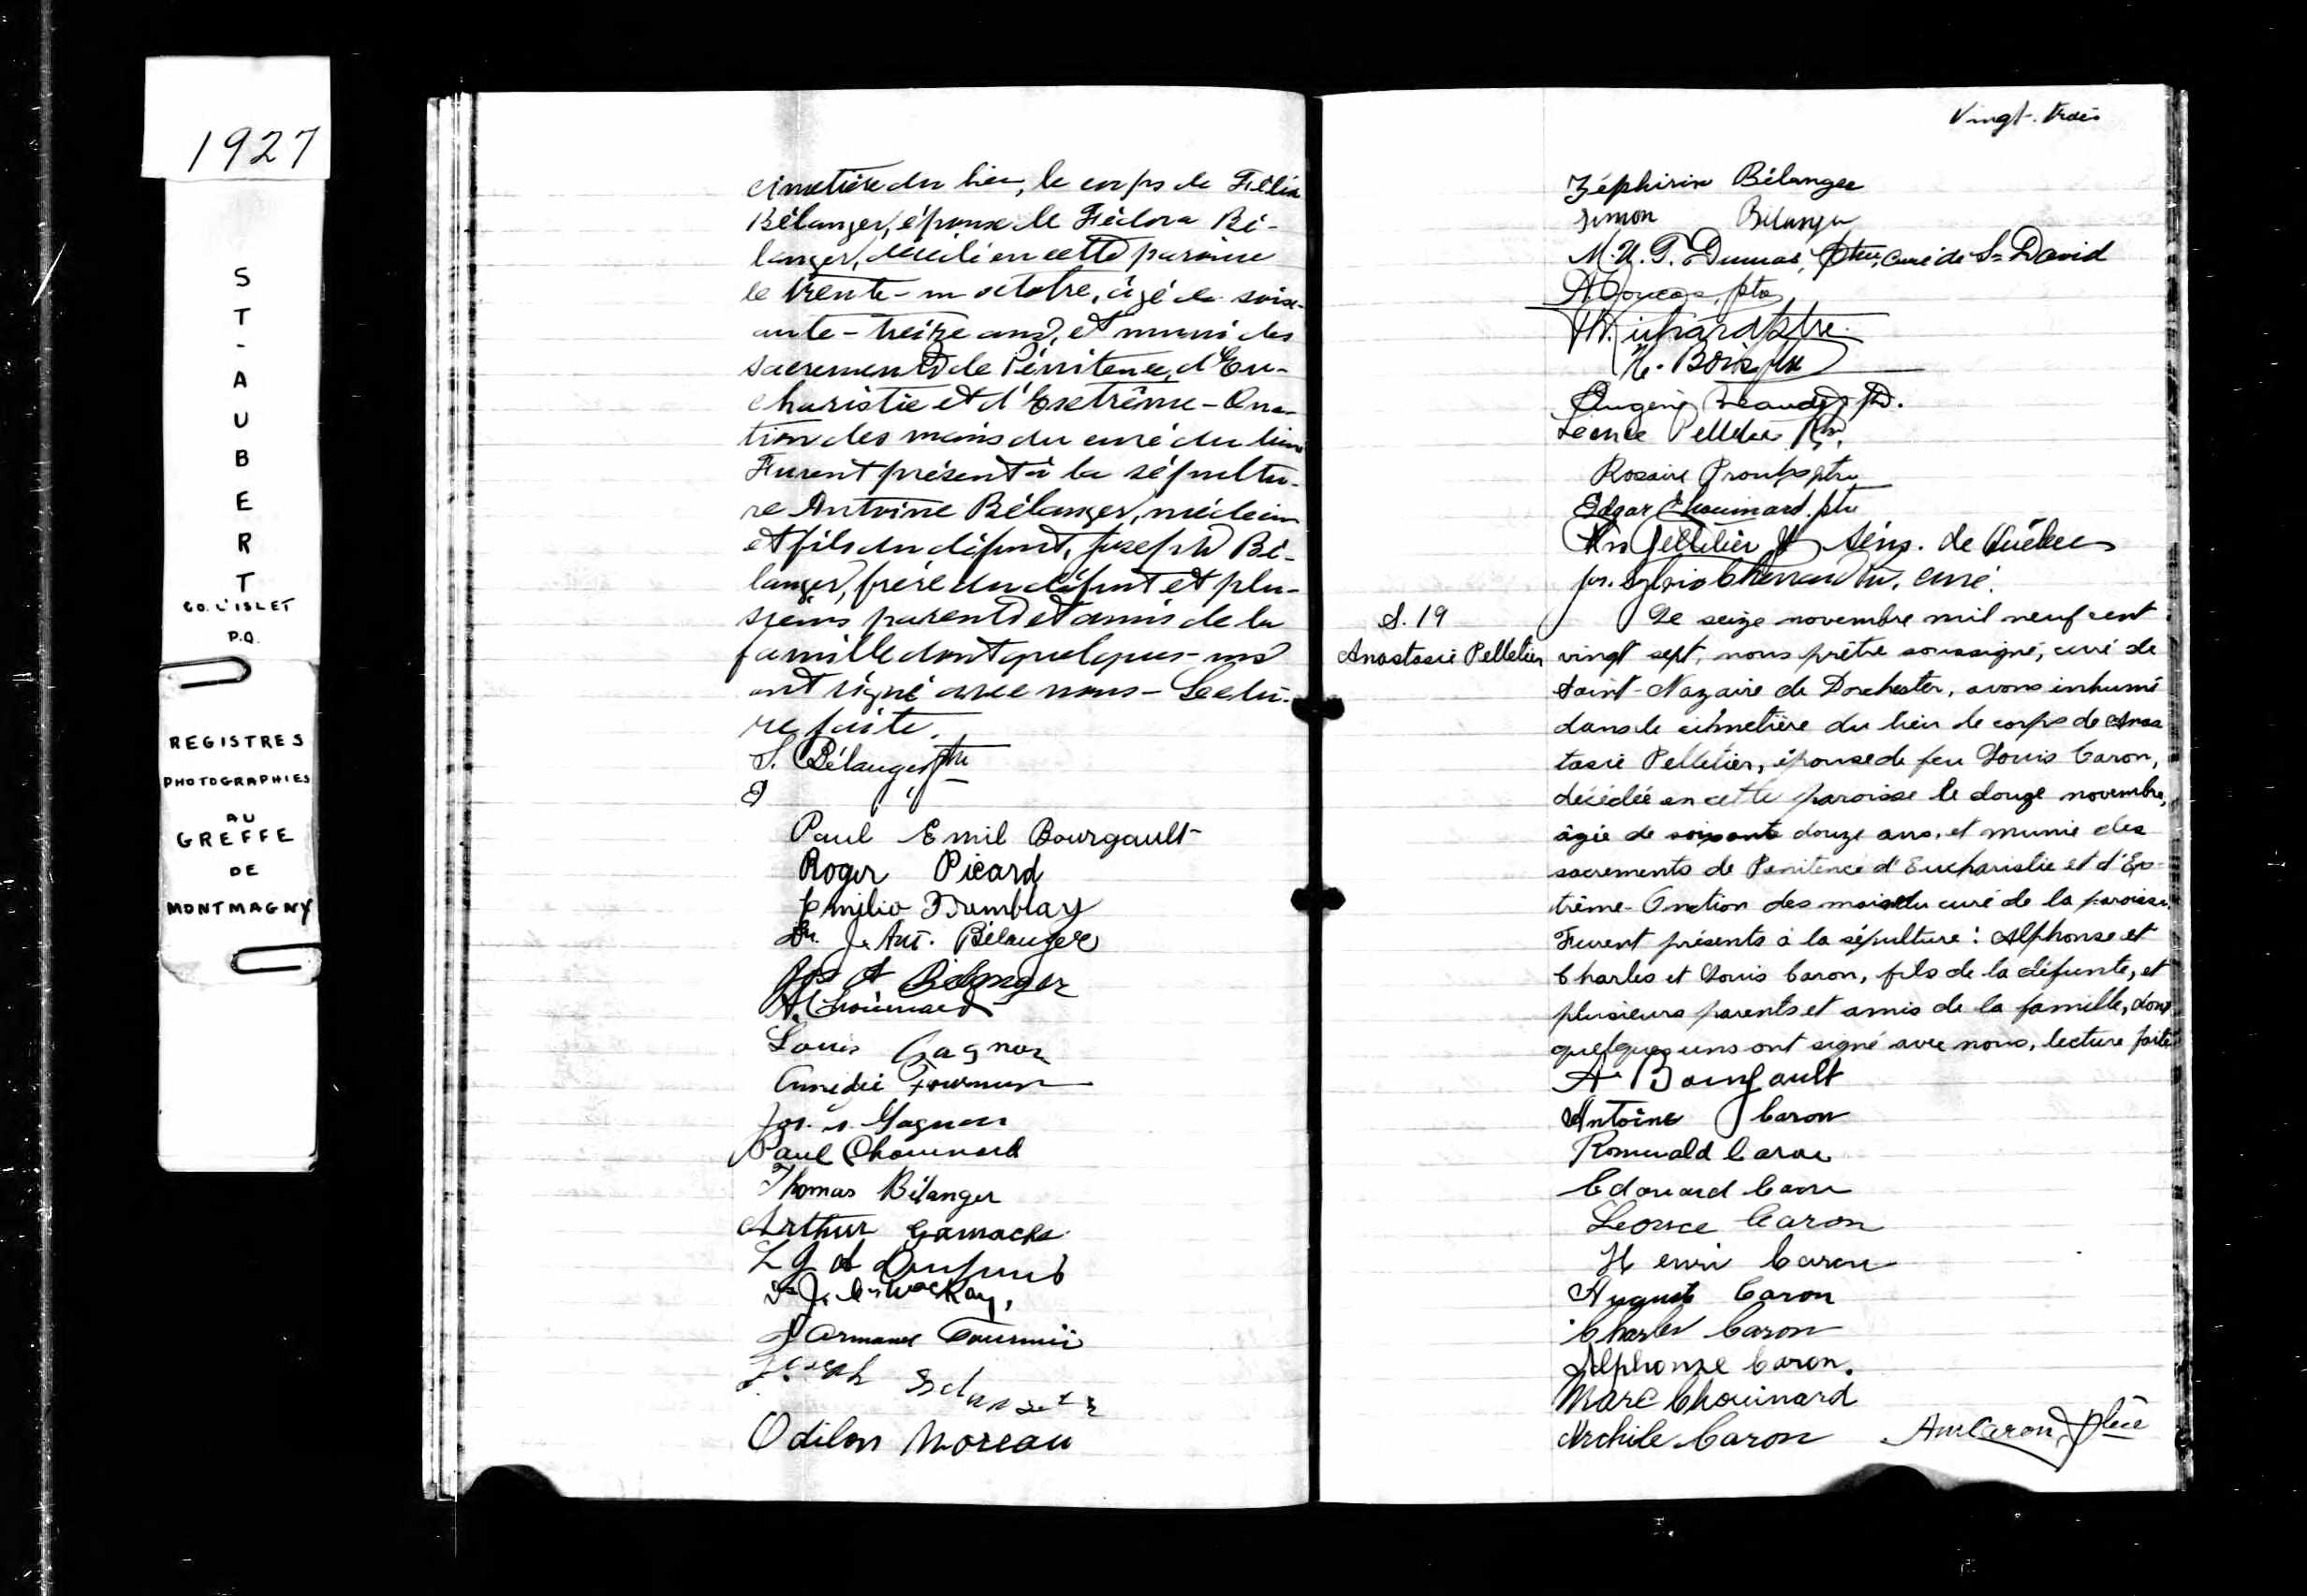 1927
ST-AUBERT
CO. L'ISLET
P.Q.
REGISTRES
PHOTOGRAPHIES
AU
GREFFE
DE
MONTMAGNY
cimetière du lieu, le corps de
Bélanger, époux de Fédora Bé-
langer, décédé en cette paroisse
le trente-un octobre, âgé de soix-
ante-treize ans, et muni des
sacrements de Pénitence, d'Eu-
charistie et d'Extrême-Onc-
tion des mains du curé du lieu
Furent présent à la sépultu-
re Antoine Bélanger, médecin
et fils du défunt, Joseph Bé-
langer, frère du défunt et plu-
sieurs parents et amis de la
famille dont quelques-uns
ont signé avec nous - Lectu-
re faite.
S. Bélanger ptre
Paul Emil Bourgault
Roger Picard
Emilio Tremblay
Dr. J. Ant. Bélanger
Jos A Bélanger
A. Chouinard
Louis Gagnon
Amédée Fournier
Jos. Gagnon
Paul Chouinard
Thomas Bélanger
Arthur Gamache
L G A Dupuis
Dr J. MacKay,
Armand Fournier
Joseph
Odilon Moreau
Vingt-trois
Zéphirin Bélanger
Simon Bélanger
M. U. T. Dumas, Ptre, Curé de St David
ptre
Richard Ptre.
Eugène ptre.
Léonce Pelletier Ptre,
Rosaire Proulx ptre
Edgar Chouinard, ptre
Pelletier Sém. de Québec
Jos. Chouinard Ptre, curé.
S. 19
Anastasie Pelletier
Le seize novembre mil neuf cent
vingt sept, nous prêtre soussigné, curé de
Saint-Nazaire de Dorchester, avons inhumé
dans le cimetière du lieu le corps de Anas
tasie Pelletier, épouse de feu Louis Caron,
décédée en cette paroisse le douze novembre,
âgée de soixante douze ans, et munie des
sacrements de Pénitence d'Eucharistie et d'Ex-
trême-Onction des mains du curé de la paroisse.
Furent présents à la sépulture: Alphonse et
Charles et Louis Caron, fils de la défunte, et
plusieurs parents et amis de la famille, dont
quelques uns ont signé avec nous, lecture faite
A. Bourgault
Antoine Caron
Romuald Caron
Edouard Caron
Léonce Caron
Henri Caron
Auguste Caron
Charles Caron
Alphonse Caron.
Marc Chouinard
Archile Caron Am Caron, Ptre